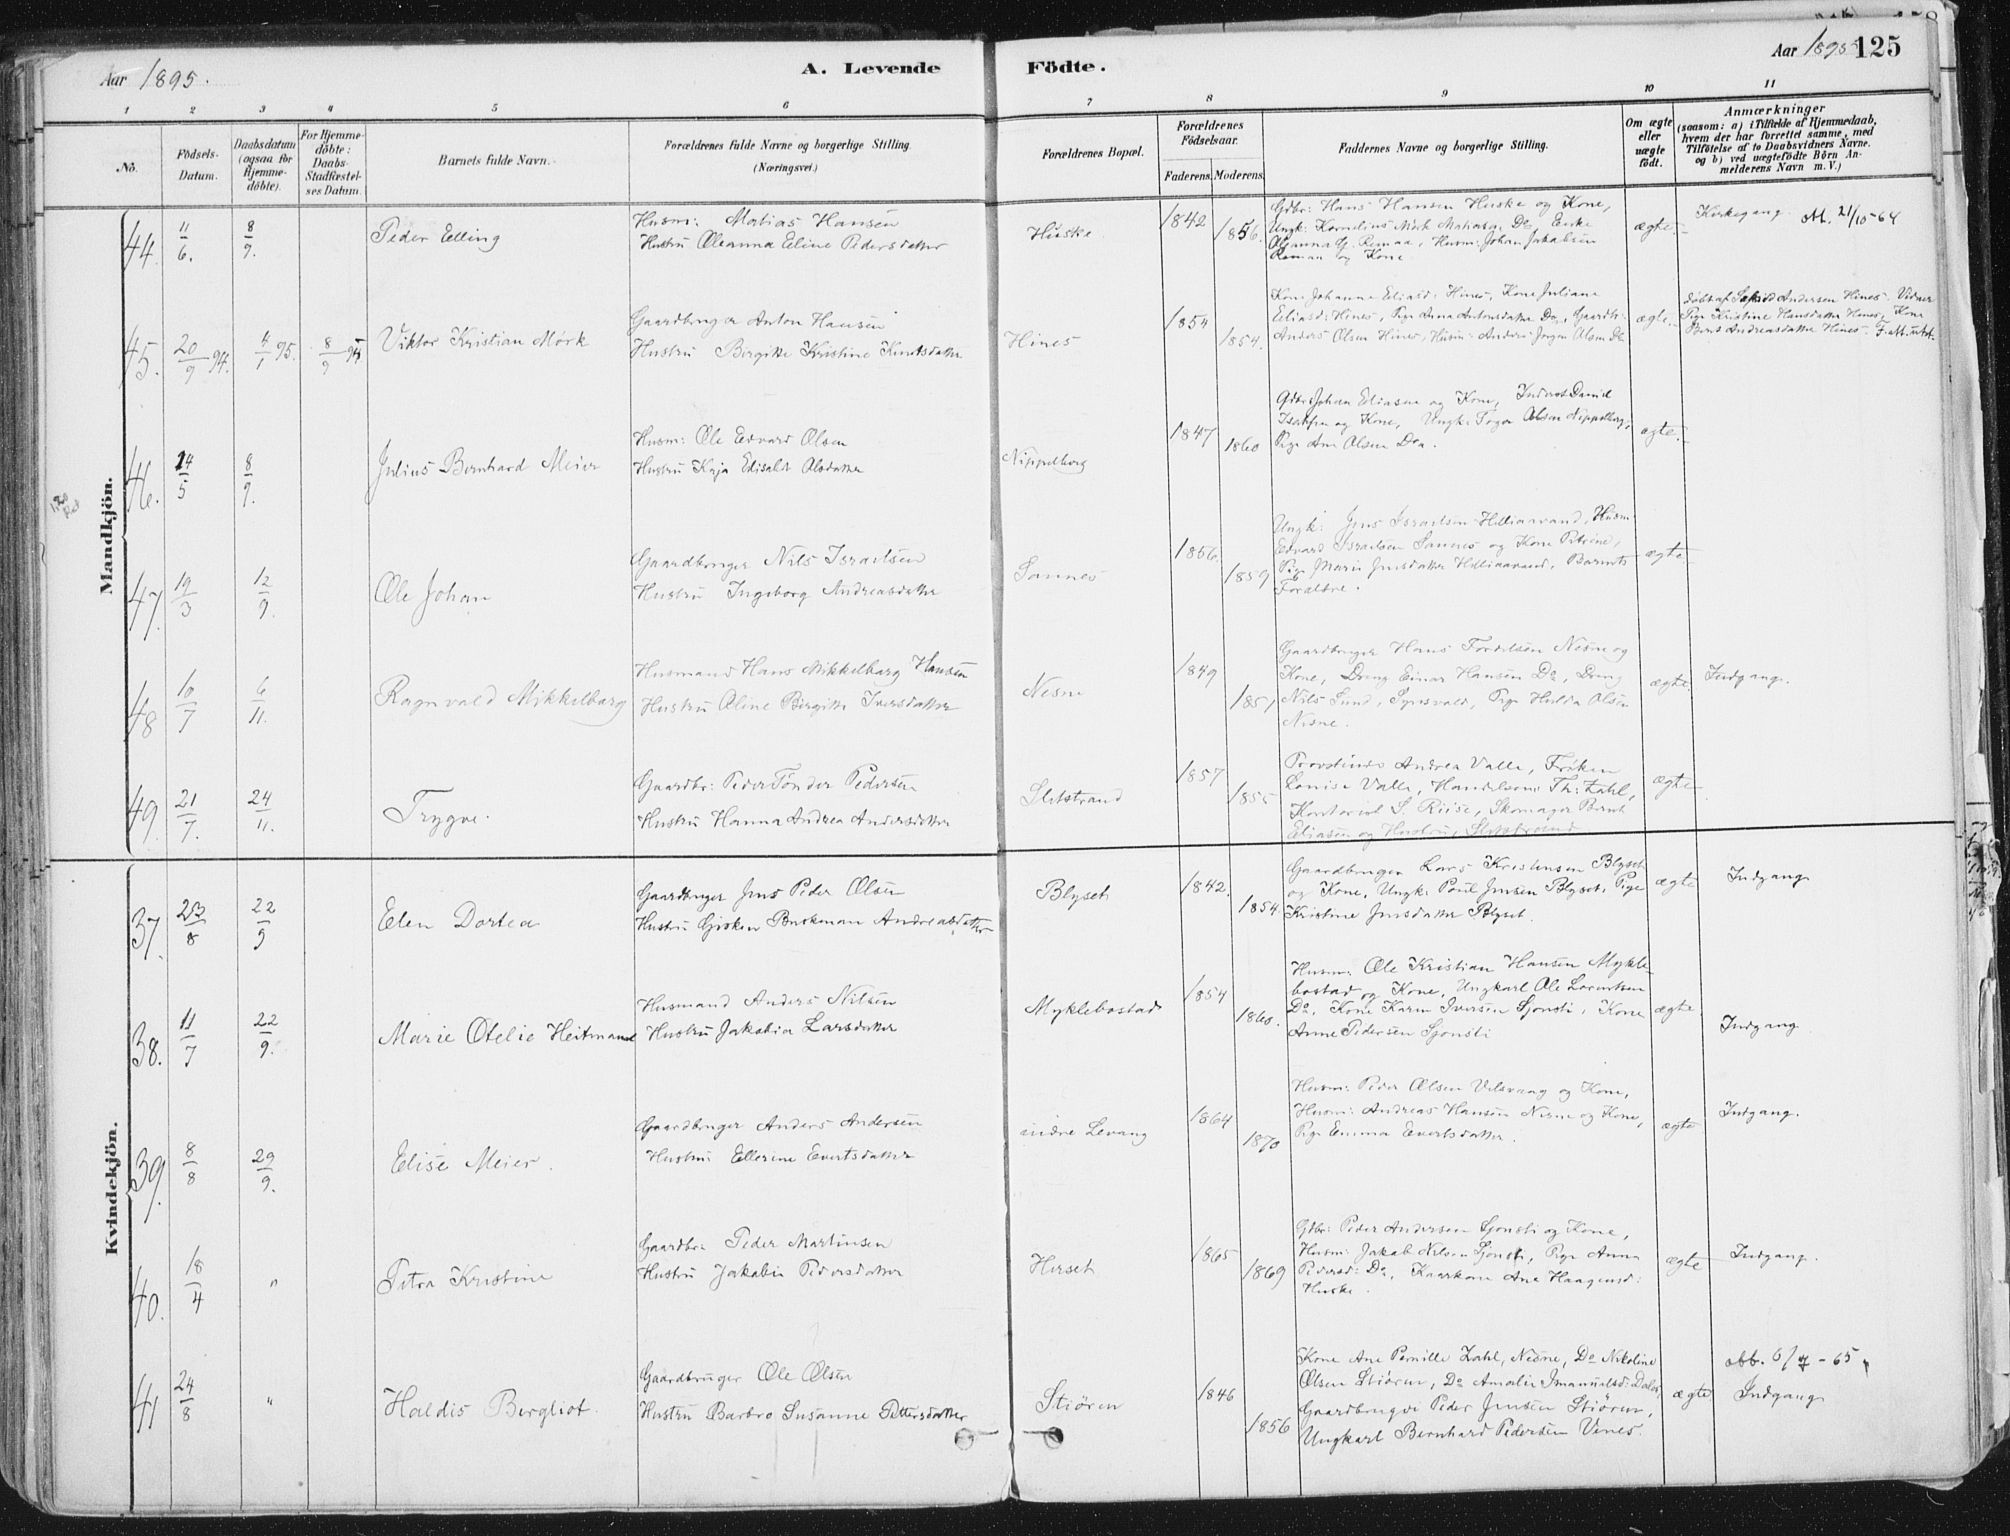 Aar 1895.
A. Levende Födte.
Aar 1895 125
1 2 3 4 5 6 7 8 9 10 11
No.
Födsels-Datum.
Daabsdatum (ogsaa for Hjemme-döbte).
For Hjemme-döbte: Daabs-Stadfæstel-ses Datum.
Barnets fulde Navn.
Forældrenes fulde Navne og borgerlige Stilling.
(Næringsvei.)
Forældrenes Bopæl.
Forældrenes Födselsaar.
Faderens. Moderens.
Faddernes Navne og borgerlige Stilling.
Om ægte eller uægte födt.
Anmærkninger
(saasom: a) i Tilfælde af Hjemmedaab,
hvem der har forrettet samme, med
Tilföielse af to Daabsvidners Navne.
og b) ved uægtefödte Börn An-
melderens Navn m. V.)
Mandkjön.
44. 11/6. 8/9. Peder Elling
Husm: Matias Hansen
Hustru Oleanna Eline Pedersdatter
Huske 1842 1856.
Gdbr: Hans Hansen Huske og Kone,
Ungk: Kornelius Mørk Do, Enke
Oleanna Remaa, Husm: Johan Jakobsen
Remaa og Kone
ægte. Kirkegang. 21/10-64
45. 20/9 94. 4/1 95. 8/9 95 Viktor Kristian Mørk
Gaardbruger Anton Hansen
Hustru Bergitte Kristine Knutsdatter
Hines 1854 1854.
Kone Johanna Eliasd: Hines, Kone Juliane
Eliasd: Hines, Pige Anna Antonsdatter Do, Gaardb:
Anders Olsen Hines, Husm: Anders Jørgen Olsen Do
ægte. Døbt af Andersen Hines. Vidner
Pige Kristine Hansdatter Hines, Kone
Berit Andreasdatter Hines.
46. 14/5 8/9. Julius Bernhard Meier
Husm: Ole Edvard Olsen
Hustru Kaja Edisalde Olsdatter
Nippelborg 1847 1860
Gdbr: Johan Eliasen og Kone, Inderst Daniel
og Kone, Ungk: Olsen Nippelborg,
Pige Ane Olsen Do.
ægte.
47. 19/3 12/9. Ole Johan
Gaardbruger Nils Israelsen
Hustru Ingeborg Andreasdatter
Sannes 1856. 1859
Ungk: Jens Israelsen Helliaavand, Husm
Edvard Israelsen Sannes og Kone Petrine,
Pige Marie Jensdatter Helliaavand, Barnets
Forældre.
ægte
48 10/7 6/11. Ragnvald Mikkelbarg
Husmand Hans Mikkelbarg Hansen
Hustru Oline Birgitte Iversdatter
Nesne 1849 1851
Gaardbruger Hans Nesne og
Kone, Dreng Einar Hansen Do, Dreng
Nils Lund, Pige Hulda Olsen
Nesne.
ægte. Indgang.
49. 21/7. 24/11. Trygve.
Gaardbr: Peder Tønder Pedersen
Hustru Hanna Andrea Andersdatter
Sletstrand 1857 1855
Provstinde Andrea Valle, Frøken
Lovise Valle, Handelsm: Th: Zahl,
Kontorist S. Riise, Skomager Bernt
Eliasen og Hustru, Sletstrand
ægte
Kvindekjön.
37. 23/8 22/9 Elen Dortea
Gaardbruger Jens Peder Olsen
Hustru Gisken Andreasdatter
Blyset 1842. 1854
Gaardbruger Lars Kristensen Blyset
og Kone, Ungk: Poul Jensen Blyset, Pige
Kristine Jensdatter Blyset.
ægte Indgang
38. 11/7 22/9. Marie Otelie Heitmann
Husmand Anders Nilsen
Hustru Jakobia Larsdatter
Myklebostad 1854 1860.
Husm: Ole Kristian Hansen Mykle-
bostad og Kone, Ungkarl Ole Lorentsen
Do, Kone Karen Iversen Sjonsti, Kone
Anne Pedersen Sjonsti
ægte Indgang.
39. 8/8 29/9. Elise Meier.
Gaardbruger Anders Andersen
Hustru Ellerine Evertsdatter
indre Levang 1864 1870
Husm: Peder Olsen og Kone,
Husm: Andreas Hansen Nesne og Kone,
Pige Emma Evertsdatter.
ægte Indgang.
40. 18/4 " Petra Kristine
Gaardbr: Peder Martinsen
Hustru Jakobia Pedersdatter
Herset 1865 1869
Gdbr: Peder Andersen Sjonsti og Kone,
Husm: Jakob Nilsen Sjonsti, Pige Anna
Pedersd: Do, Kaarkone Ane Haagensd:
Huske.
ægte Indgang.
41 24/8 " Haldis Bergliot.
Gaardbruger Ole Olsen
Hustru Barbro Susanne Pettersdatter
Stiøren 1846 1856
Kone Ane Pernille Zahl, Nesne, Do Nikoline
Olsen Stiøren, Do Amalie Imanuelsd:
Gaardbruger Peder Jensen Stiøren,
Ungkarl Bernhard Pedersen Vines.
ægte Indgang
6/7-65